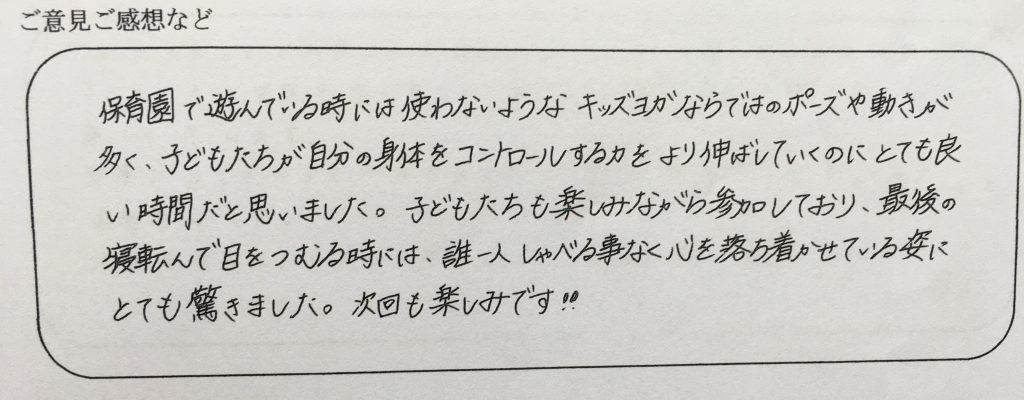 ご意見ご感想など
保育園で遊んでいる時には使わないようなキッズヨガならではのポーズや動きが
多く、子どもたちが自分の身体をコントロールする力をより伸ばしていくのにとても良
い時間だと思いました。子どもたちも楽しみながら参加しており、最後の
寝転んで目をつむる時には、誰一人しゃべる事なく心を落ち着かせている姿に
とても驚きました。次回も楽しみです!!